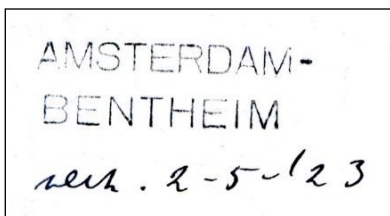 AMSTERDAM-
BENTHEIM
2-5-'23